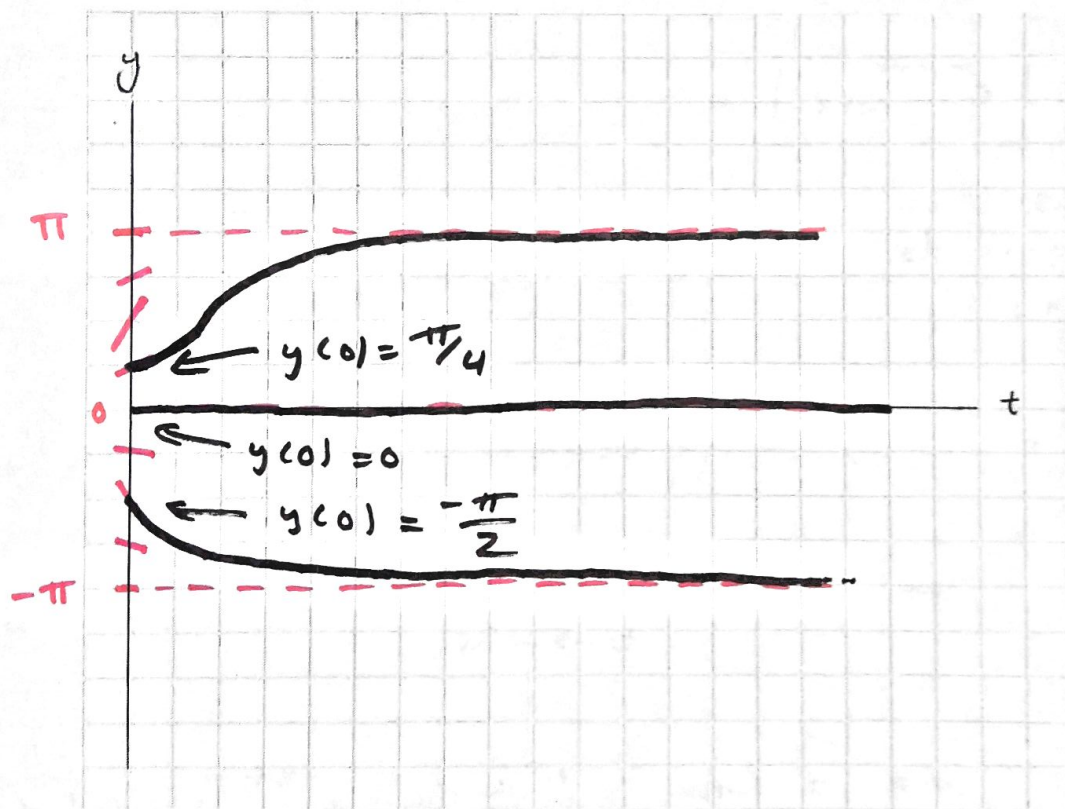 y
π
y(0) = π/4
0
t
y(0) = 0
y(0) = -π/2
-π